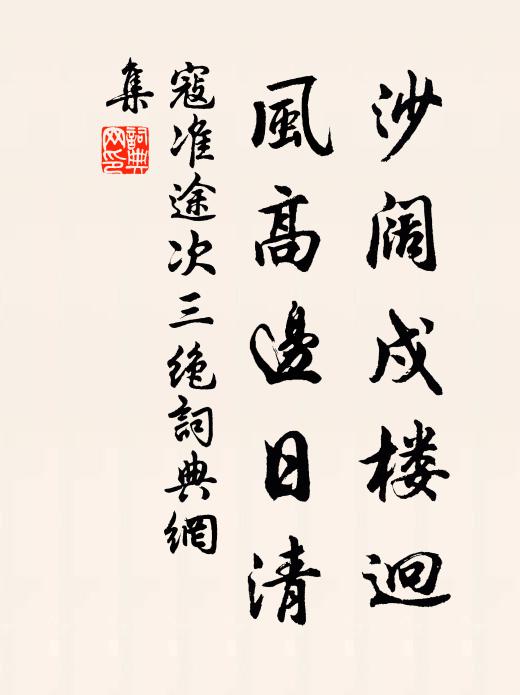 沙阔戍楼迥
風高邊日清
寇准途次三绝詞典網
集
詞典網印